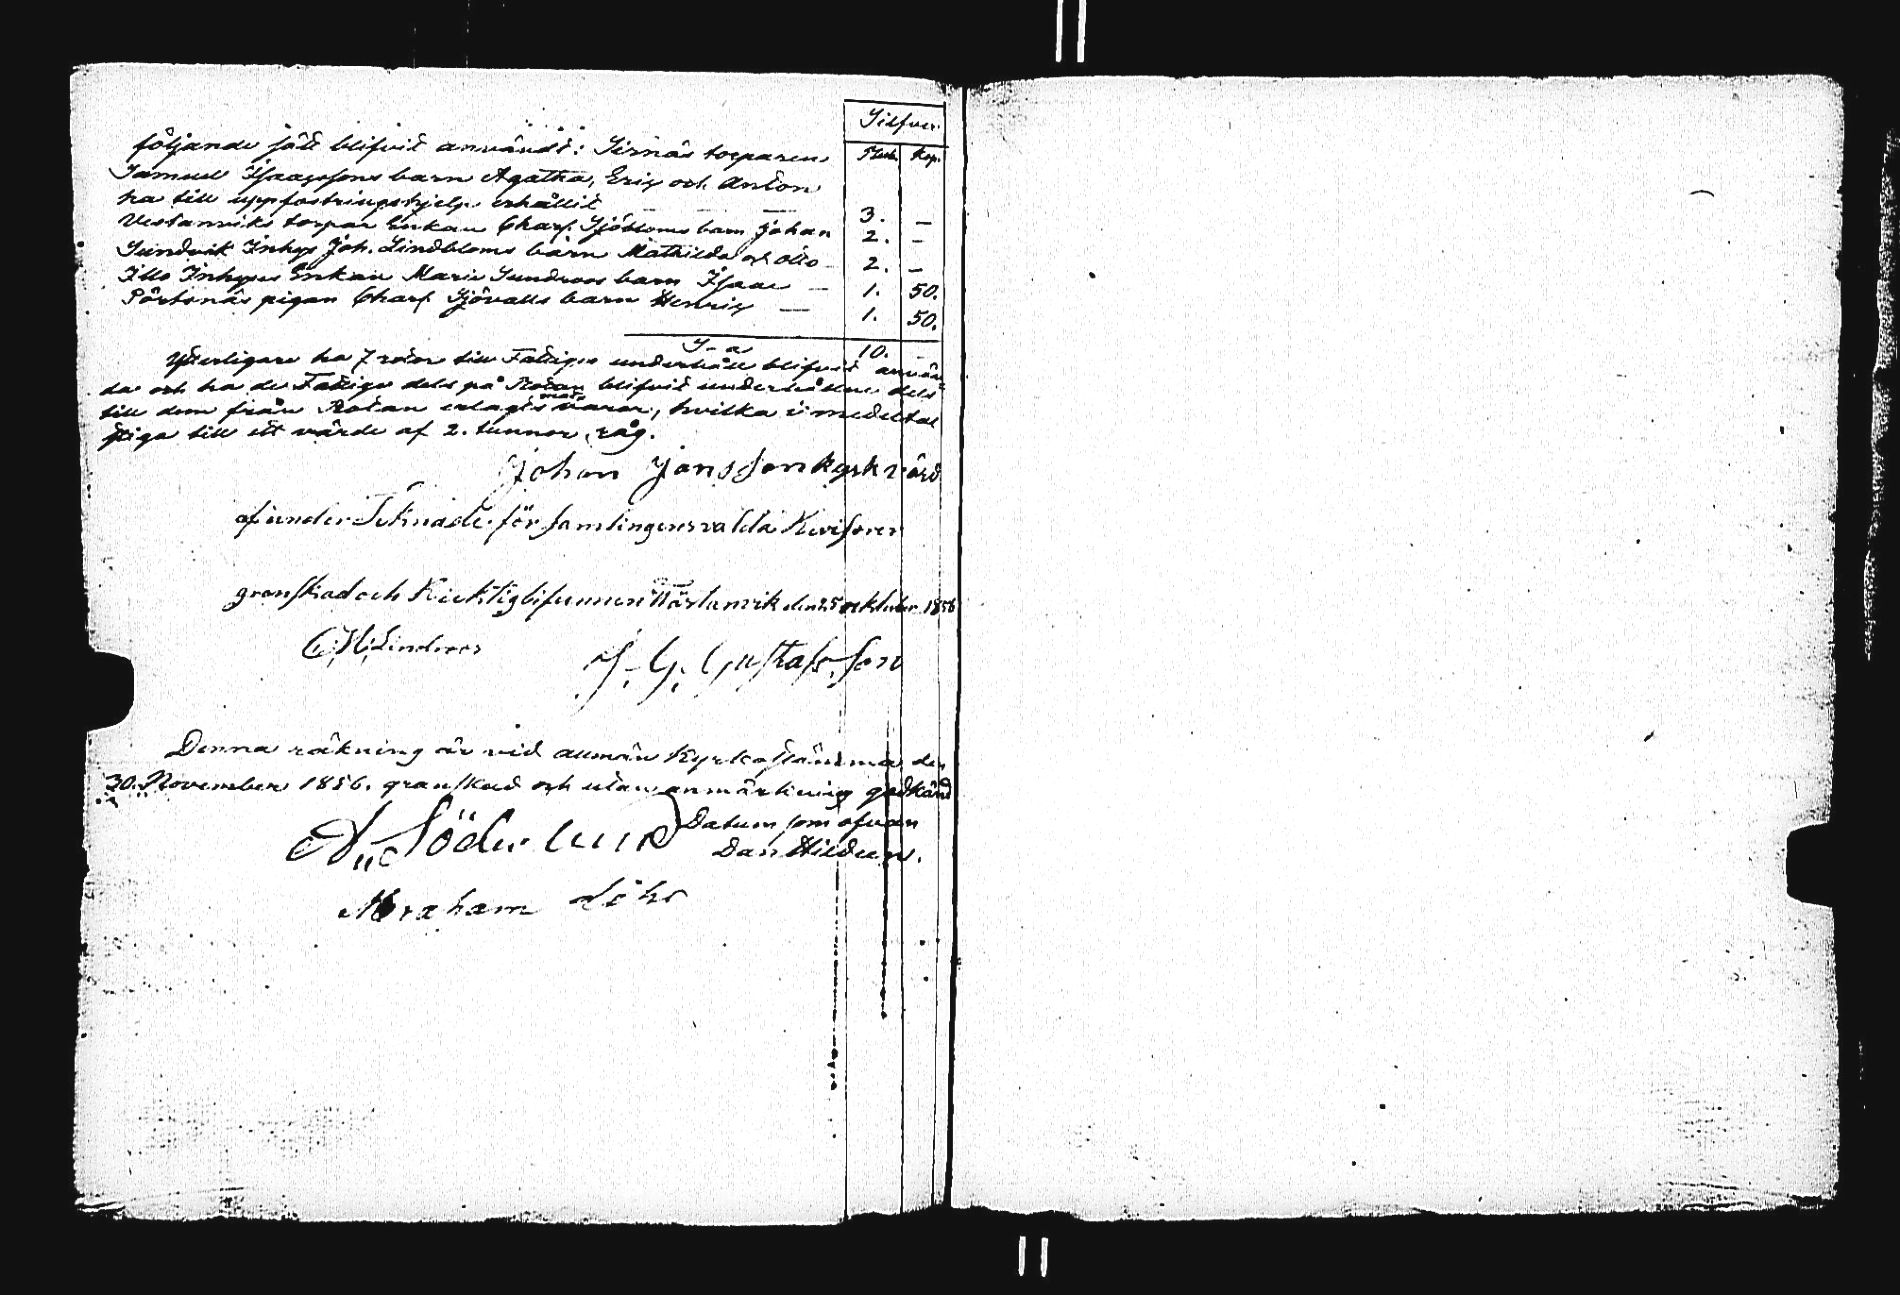 Silfver.
Rub. Kop.
följande sätt blifvit användt: Sirnäs torparens
Samuel Isaacssons barn Agatha, Eric och Anton
ha till uppfostringshjelp erhållit — — — 3. —
Vestanviks torpar Enkan Charl. Sjöbloms barn Johan 2. —
Sundvik Inhys Joh. Lindbloms barn Mathilda och Otto — 2. —
Dito Inhyses Enkan Maria Sundroos barn Isaac — 1. 50.
Pörtsnäs pigan Charl. Sjövalls barn Henric — 1. 50.
S-a 10. —
Ytterligare ha 7 rotor till Fattiges underhåll blifvit använ-
da och ha de Fattige dels på Rotan blifvit underhållne dels
till dem från Rotan erlagts matvaror, hvilka i medeltal
stiga till ett värde af 2. tunnor råg.
Johan Jansson kyrkvärd
af under Teknade för samlingens valda Revisorer
granskad och Ricktig bifunnen Wästanvik den 25 oktober 1856
C. H. Lindroos
J. G. Gustafsson
Denna räkning är vid allmän Kyrkostämma den
30. November 1856. granskad och utan anmärkning godkänd
Datum som ofvan
A. Söderlund
Dan Hildeen.
Abraham